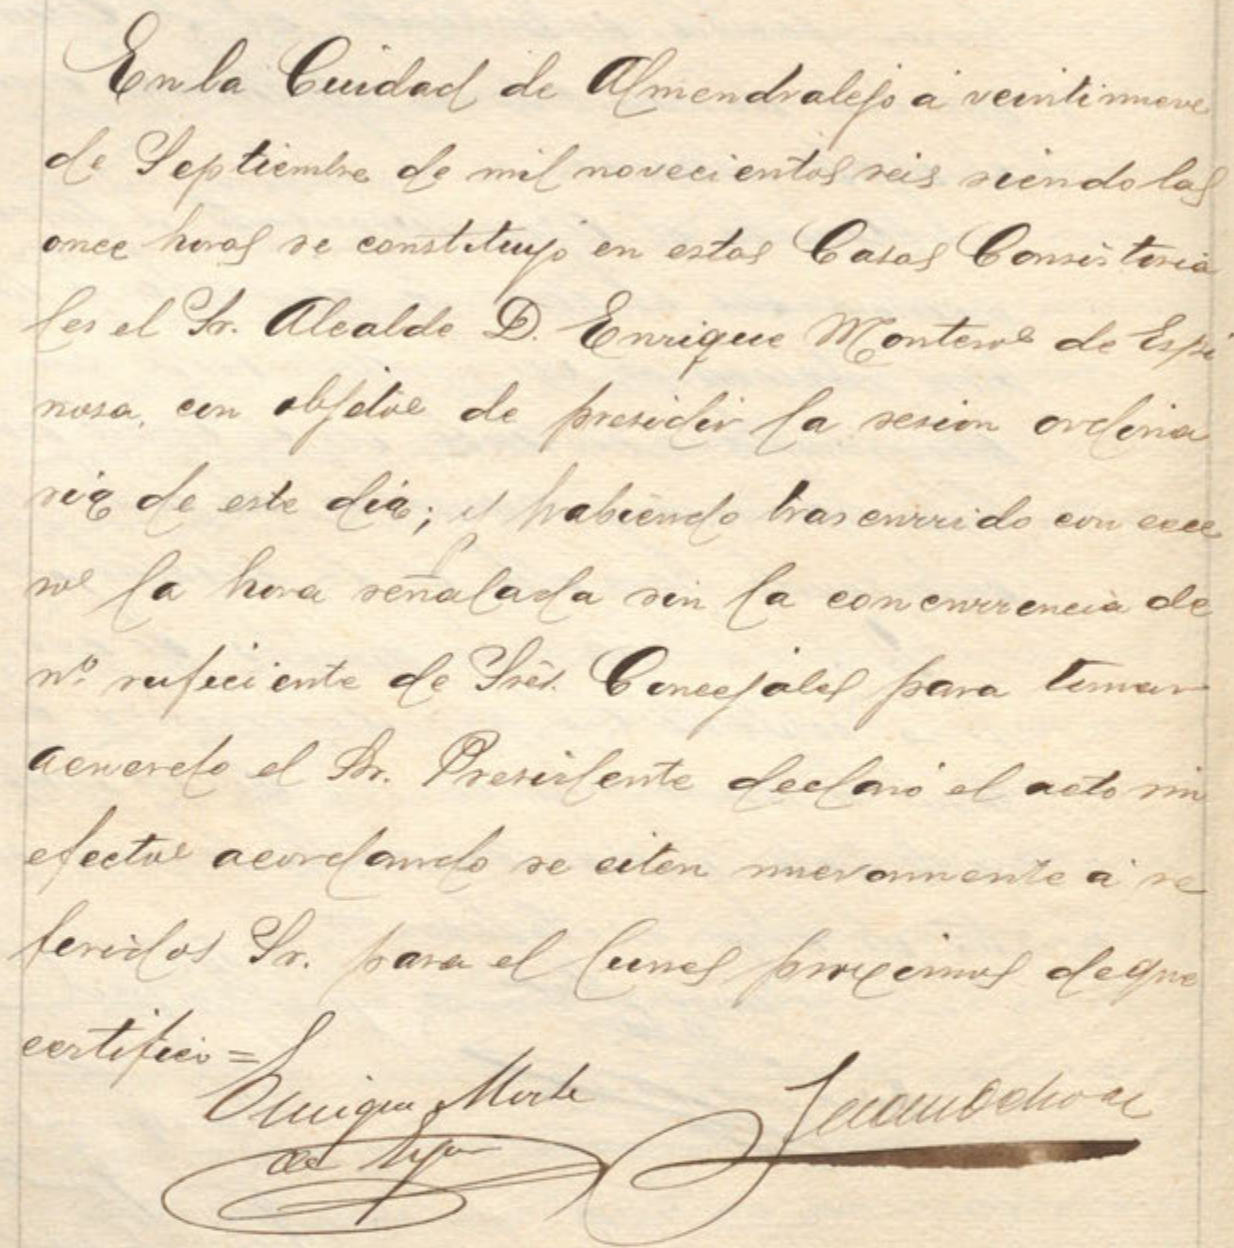 En la Cuidad de Almendralejo á veintinueve
de Septiembre de mil novecientos seis siendo las
once horas se constituyó en estas Casas Consistoria
les el Sr. Alcalde D. Enrique Montero de Espi
nosa, con objeto de presidir la sesion ordina
ria de este dia; y habiendo trascurrido con exce
so la hora señalada sin la concurrencia de
nº suficiente de Sres. Concejales para tomar
acuerdo el Sr. Presidente declaró el acto sin
efecto acordando se citen nuevamente á re
feridos Sr. para el lunes proximo de que
certifico =
Enrique Monte
de Espa
Juan Ochoa